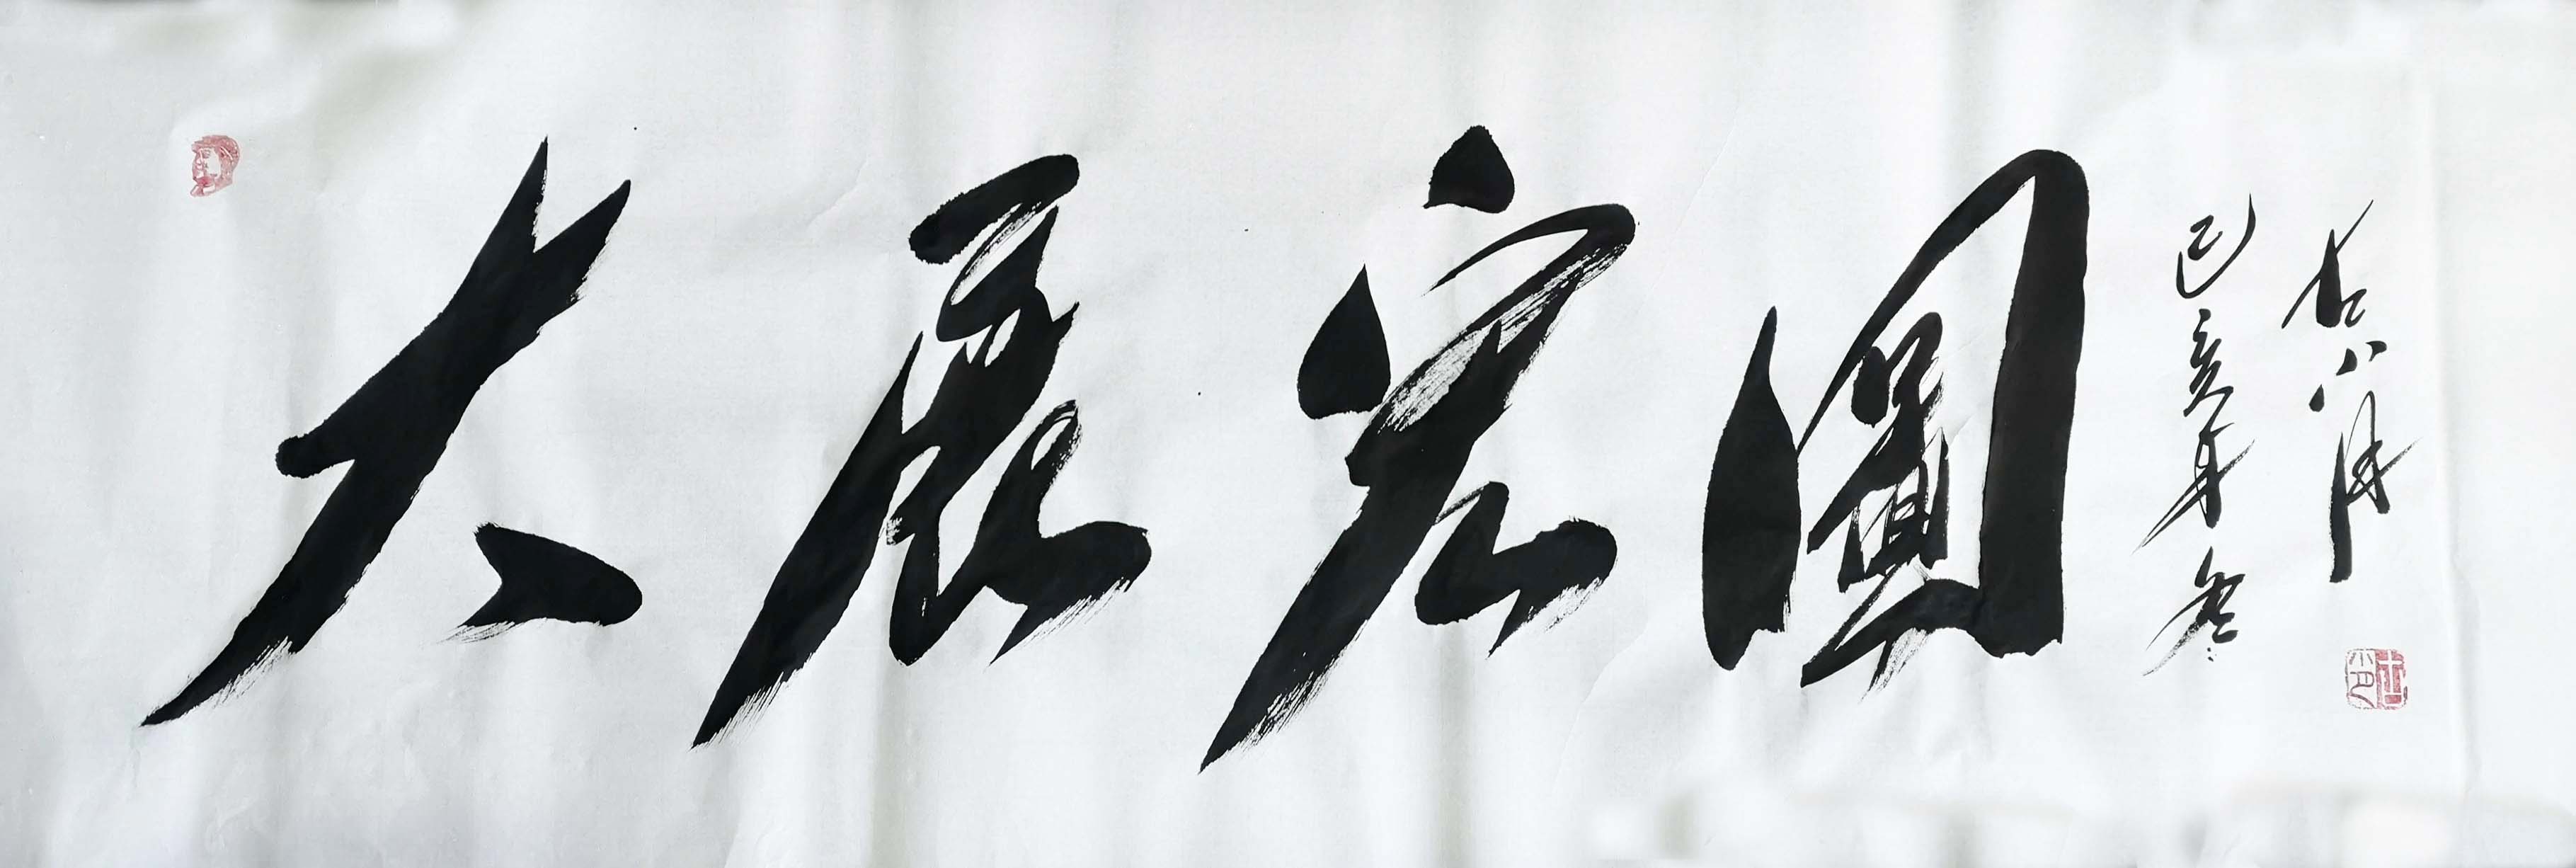 大展宏圖
己亥年冬